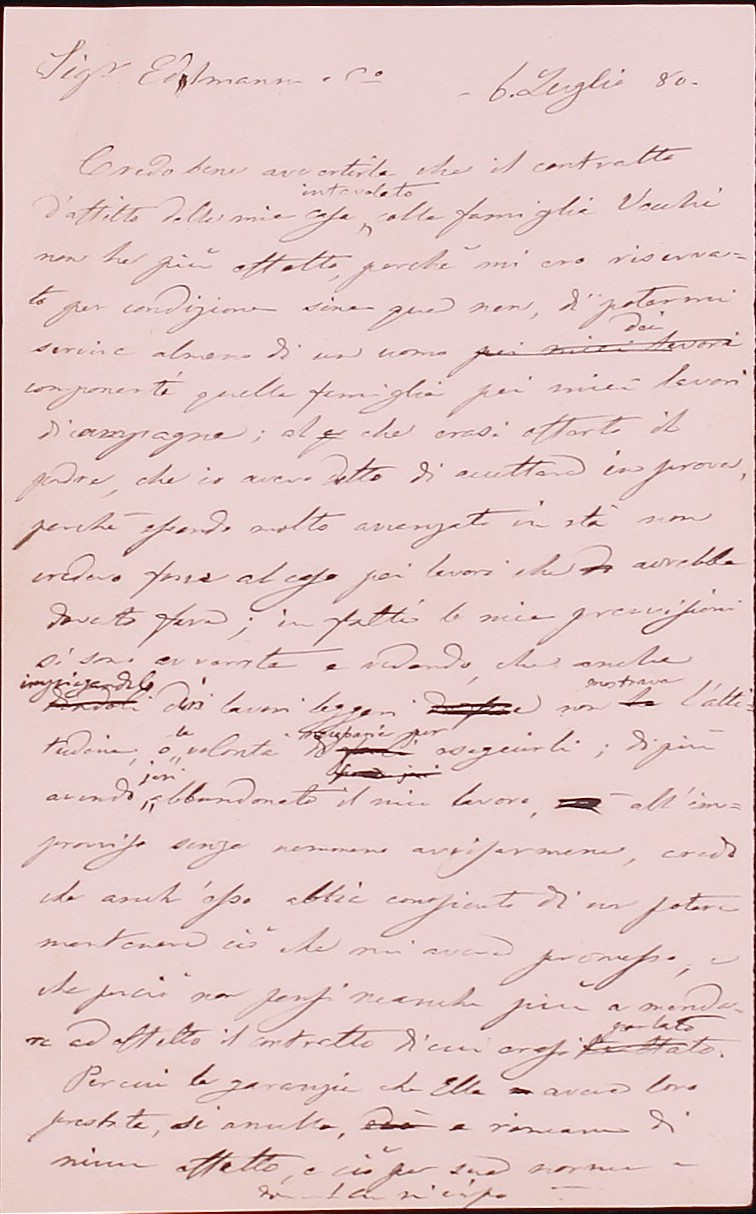 Sigr Edlmann e Co - 6. Luglio 80 -
Credo bene avvertirla che il contratto
intavolato
d'affitto della mia casa colla famiglia Vecchi
non ha più effetto, perchè mi ero riserva=
to per condizione sine qua non, di potermi
dei
servire almeno di un uomo pei miei lavori
componenti quella famiglia pei miei lavori
di campagna; al che erasi offerto il
padre, che io avevo detto di accettare in prova,
perchè essendo molto avanzato in età non
credevo fosse al caso pei lavori che avrebbe
dovuto fare; in fatti le mie previsioni
si sono avverate e vedendo, che anche
impiegandolo mostrava
dei lavori leggeri non ha l'atti=
la per
tudine, o volontà di eseguirli; di più
jeri
avendo abbandonato il mio lavoro, all'im=
provviso senza nemmeno avvisarmene, credo
che anch'esso abbia conosciuto di non potere
mantenere ciò che mi aveva promesso, e
che perciò non pensi neanche più a manda=
parlato
re ad effetto il contratto di cui erasi trattato.
Percui la garanzia che Ella aveva loro
prestata, si annulla, e rimane di
niun effetto, e ciò per sua norma e